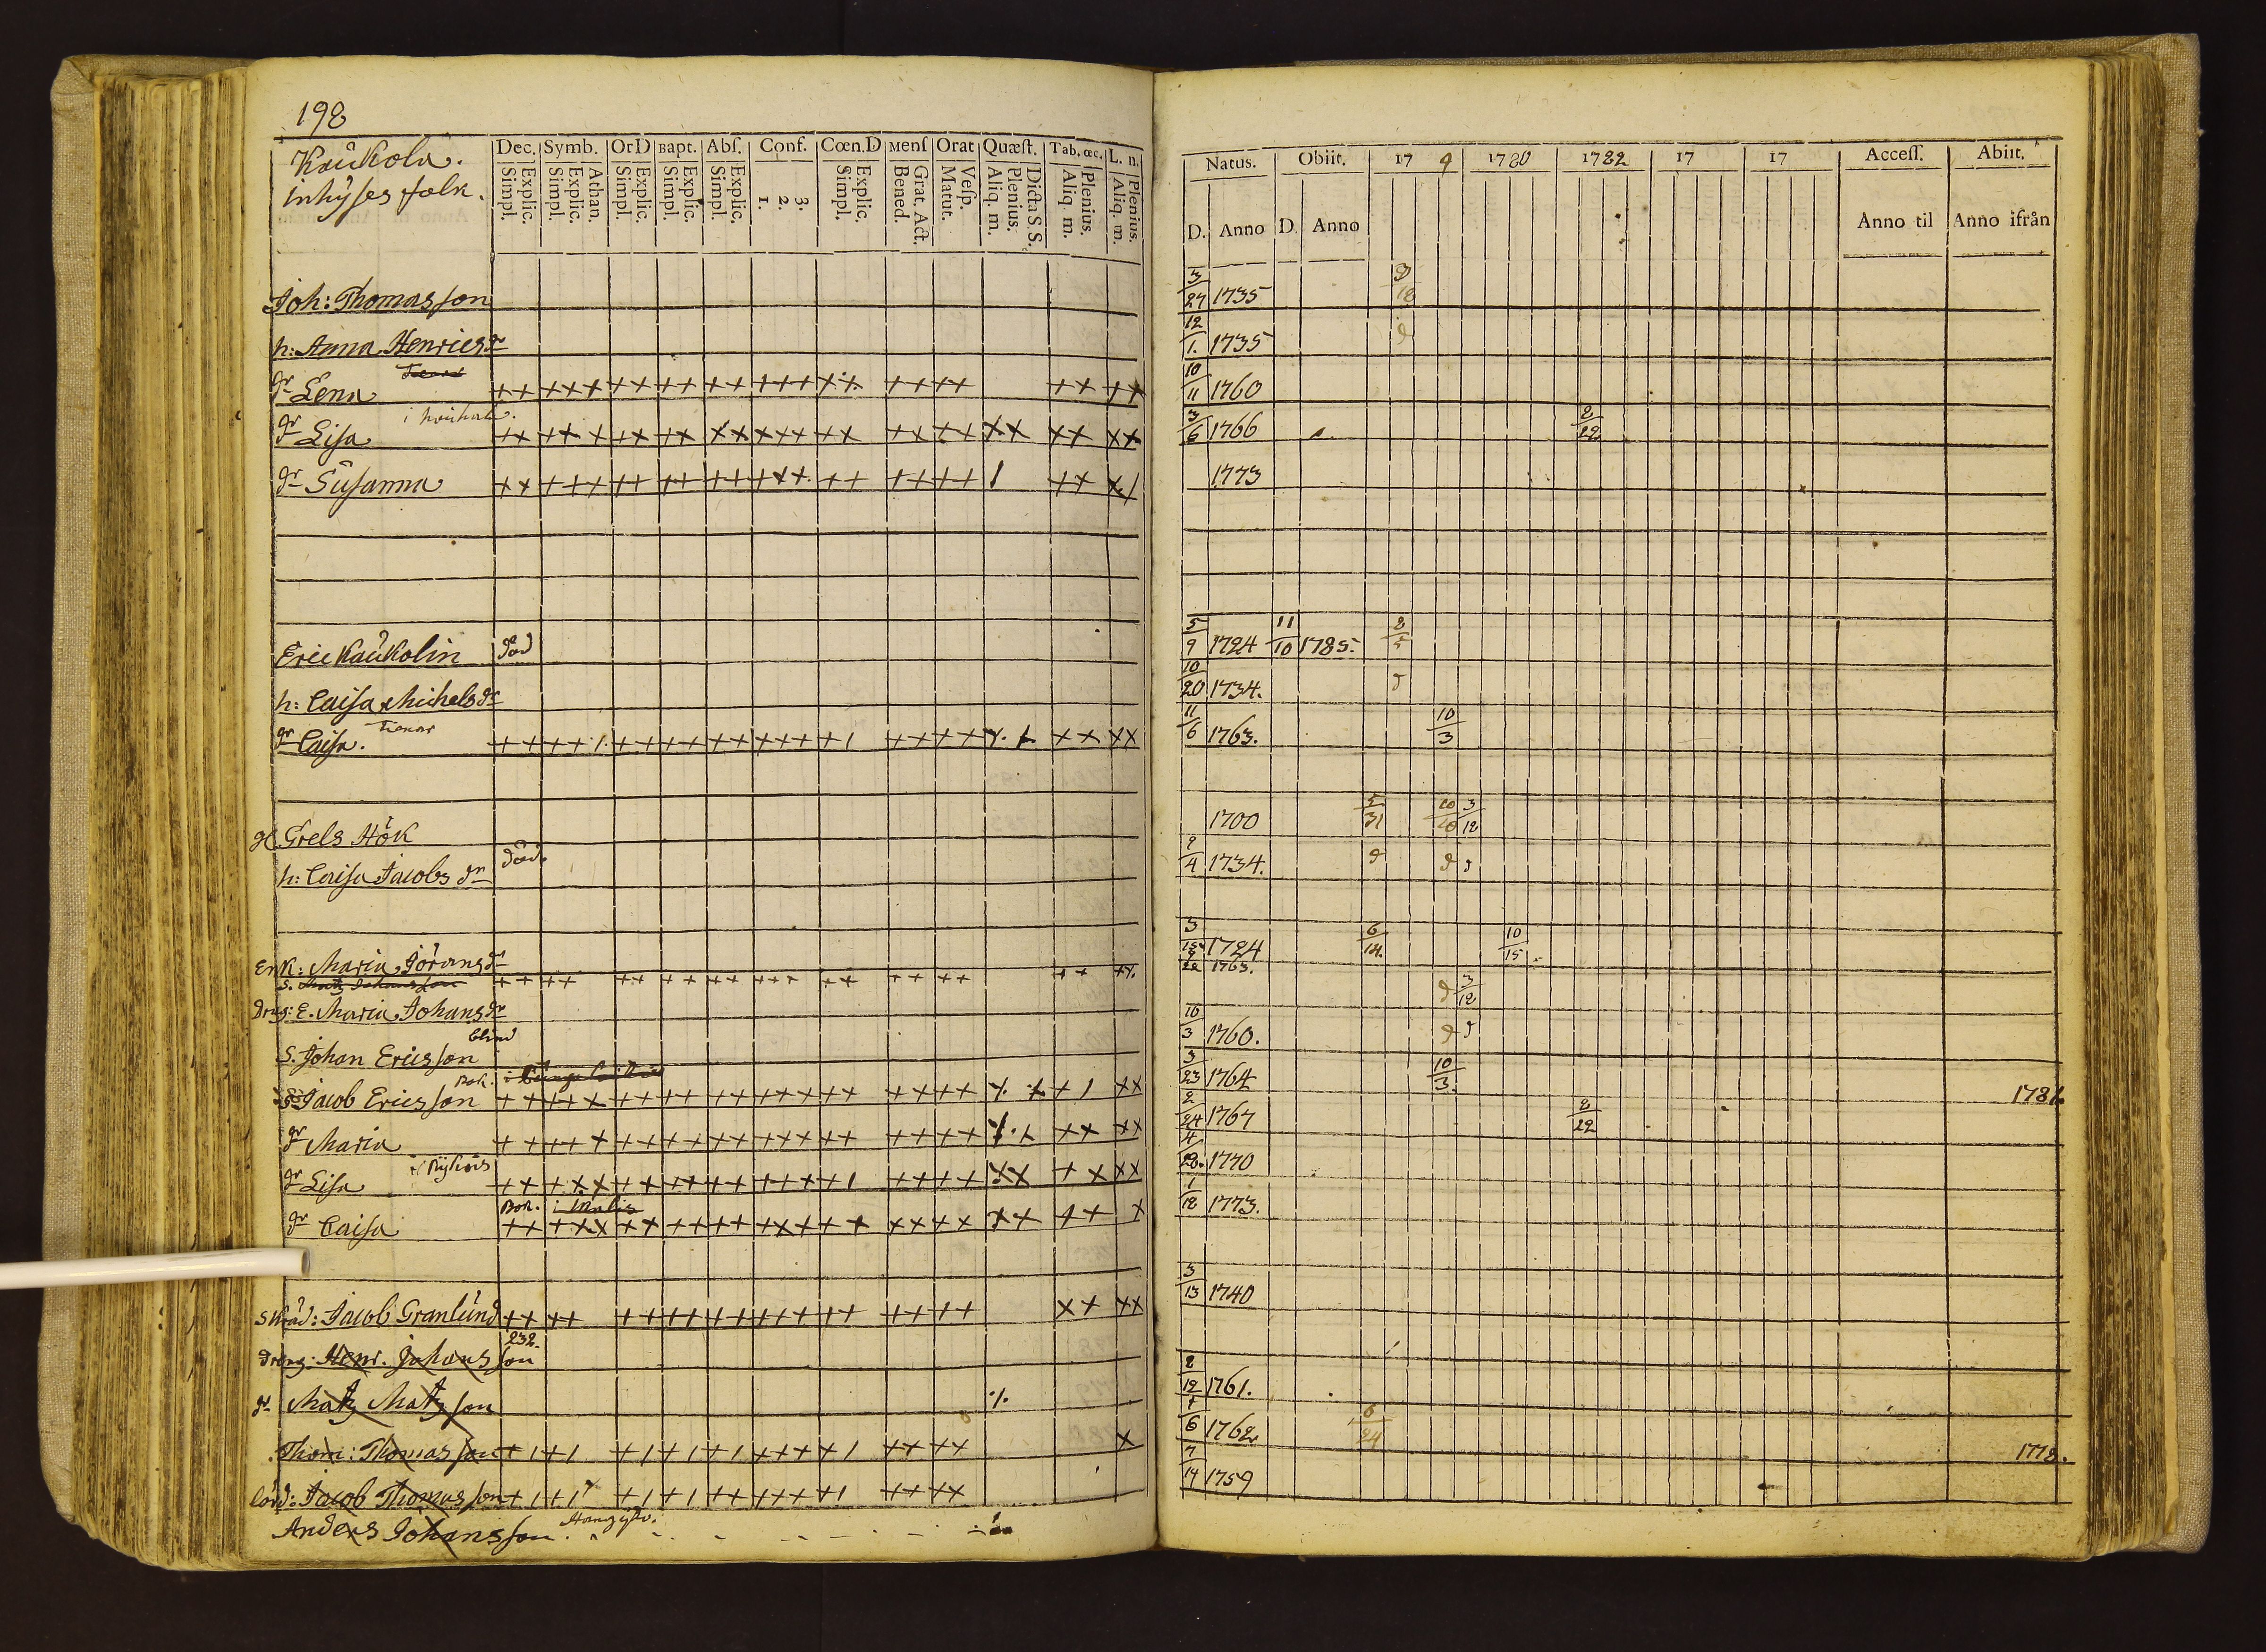 198
Kaukola.
inhyses folk.
Dec. Symb. OrD Bapt. Abſ. Conf. Cœn.D Menſ Orat Quæſt. Tab. œc. L. n.
Explic. Simpl. Athan. Explic. Simpl. Explic. Simpl. Explic. Simpl. Explic. Simpl. 3. 2. 1. Explic. Simpl. Grat. Act. Bened. Veſp. Matut. Dicta S.S. Plenius. Aliq. m. Plenius. Aliq. m. Plenius. Aliq. m.
Natus. Obiit. 17 9 1780 1782 17 17 Acceſſ. Abiit.
D. Anno D. Anno Anno til Anno ifrån
Joh: Thomasson 3/27 1735 9/18
h: Anna Henricsdr 12/1. 1735 d
dr Lena ++ +++ ++ ++ ++ +++ ++ ++ ++ ++ ++ 10/11 1760
dr Lisa ++ +++ ++ ++ ++ +++ ++ ++ ++ ++ ++ ++ 3/6 1766 2/22
dr Susanna ++ +++ ++ ++ ++ +++ ++ ++ ++ / ++ +/ 1773
Eric Kaukolin död 5/9 1724 11/10 1785. 2/5
h: Caisa Michelsdr 10/20 1734. d
dr Caisa. Tienar ++ ++/ ++ ++ ++ +++ +/ ++ ++ ++ ++ ++ 11/6 1763. 10/3
gl. Grels Hök 1700 5/31 10/10 3/12
h: Caisa Jacobs dr död. 2/4 1734. d d d
Enk: Maria Jöransdr 3/15 1724 6/14. 10/15
s. Matz Johansson ++ ++ ++ ++ ++ +++ ++ ++ ++ ++ ++ 22 1763.
Dreng: E. Maria Johansdr d 3/12
S. Johan Ericsson blind 10/3 1760. d d
Jacob Ericsson ++ +++ ++ ++ ++ +++ ++ ++ ++ +/ ++ 3/23 1764 10/3. 1781.
dr Maria ++ +++ ++ ++ ++ +++ ++ ++ ++ ++ ++ 2/24 1767 2/22
dr Lisa ++ +++ ++ ++ ++ +++ +/ ++ ++ ++ ++ ++ 4/20. 1770
dr Caisa ++ +++ ++ ++ ++ +++ ++ ++ ++ ++ ++ + 1/12 1773.
Skräd: Jacob Granlund ++ ++ ++ ++ ++ +++ ++ ++ ++ ++ ++ 3/13 1740
dreng: Henr. Johansson 232.
dr. Matz Matzson 2/12 1761.
Thom: Thomasson +/ +/ +/ +/ +/ +++ +/ ++ ++ + 6 1762 6/24
Jacob Thomasson +/ +/ +/ +/ ++ +++ +/ ++ ++ 7/14 1759 1778.
Anders Johansson